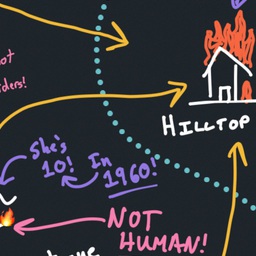 ders!
HILLTOP
She's
10!
In
1960!
NOT
HUMAN!